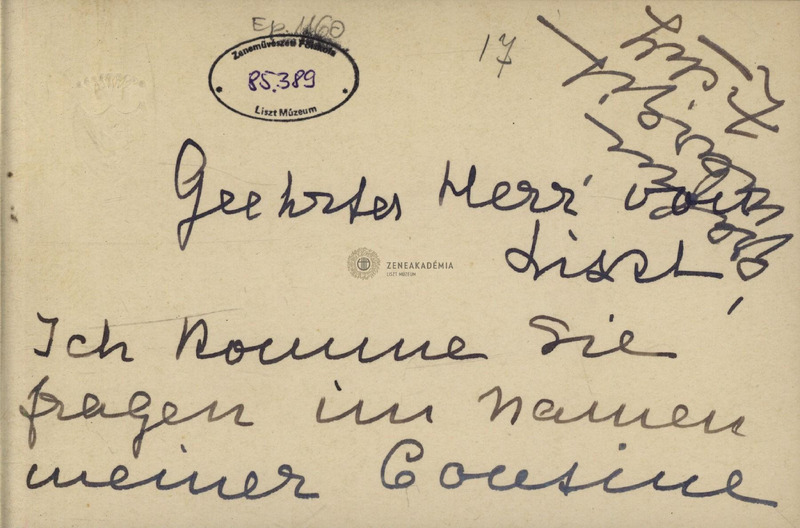 Ep. 1160
Zeneművészeti Főiskola
85.389
Liszt Múzeum
17
Geehrter Herr von
Liszt,
ZENEAKADÉMIA
LISZT MÚZEUM
Ich komme Sie
fragen im Namen
meiner Cousine